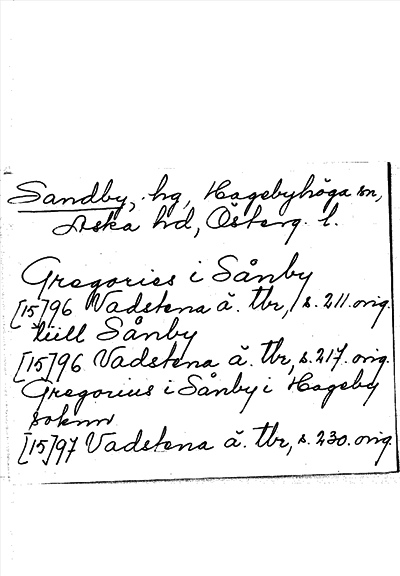 Sandby, hg, Hagebyhöga sn,
Aska hd, Österg. l.
Gregorius i Sånby
[15]96 Vadstena ä. tbr, s. 211. orig.
tiill Sånby
[15]96 Vadstena ä. tbr, s. 217. orig.
Gregorius i Sånby i Hageby
soknn
[15]97 Vadstena ä. tbr, s. 230. orig